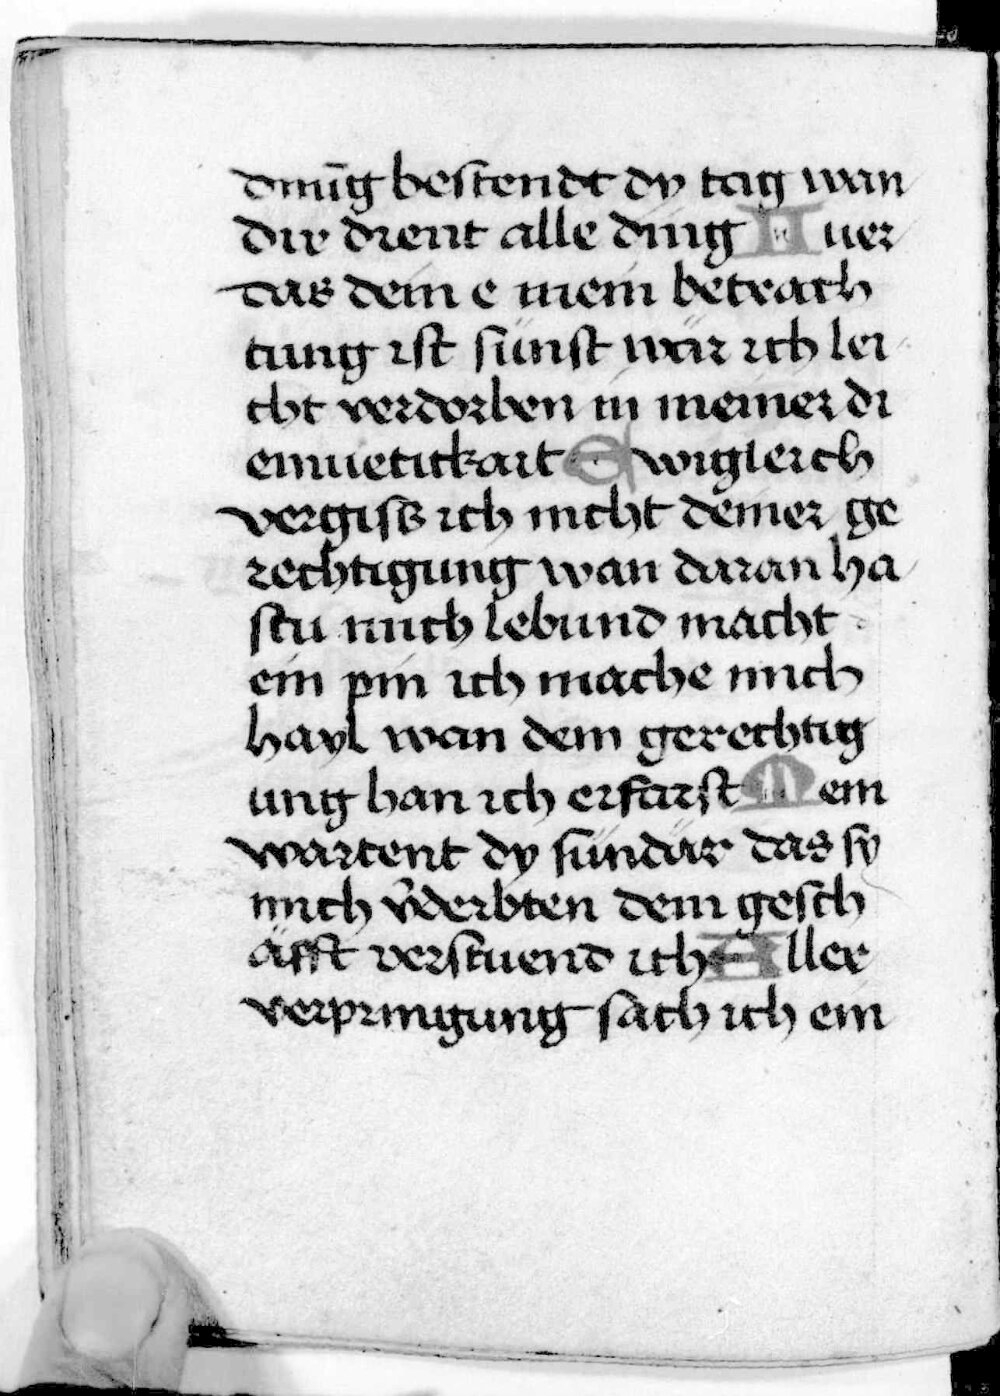 dnūg bestendt dy tag wan
dir dient alle ding Nuer
das dein e mein betrach
tung ist sünst wär ich lei
cht verdorben in meiner di
emuetickait Ewigleich
vergiss ich nicht deiner ge
rechtigung wan daran ha
stu mich lebund macht
ein pin ich mache mich
hayl wan dein gerechtig
ung han ich erfarst Mein
wartent dy sündär das sy
mich v̈derbten dein gesch
äfft verstuend ich Aller
verpringung sach ich ein